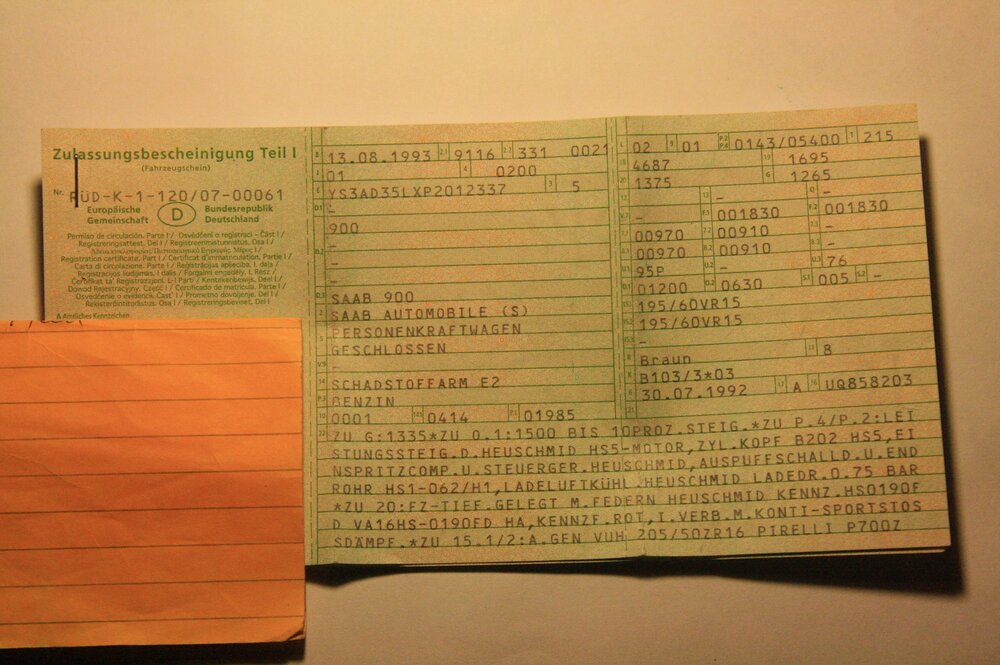 Zulassungsbescheinigung Teil I
(Fahrzeugschein)
Nr. RÜD-K-1-120/07-00061
Europäische Gemeinschaft D Bundesrepublik Deutschland
Permiso de circulación. Parte I / Osvědčení o registraci - Část I /
Registreringsattest. Del I / Registreerimistunnistus. Osa I /
Άδεια κυκλοφορίας/Πιστοποιητικό Εγγραφής. Μέρος I /
Registration certificate. Part I / Certificat d'immatriculation. Partie I /
Carta di circolazione. Parte I / Reģistrācijas apliecība. I. daļa /
Registracijos liudijimas. I dalis / Forgalmi engedély. I. Rész /
Ċertifikat ta' Reġistrazzjoni. L-I Parti / Kentekenbewijs. Deel I /
Dowód Rejestracyjny. Część I / Certificado de matrícula. Parte I /
Osvedčenie o evidencii. Časť I / Prometno dovoljenje. Del I /
Rekisteröintitodistus. Osa I / Registreringsbeviset. Del I
A Amtliches Kennzeichen
B 13.08.1993 2.1 9116 2.2 331 0021
J 01 4 0200
E YS3AD35LXP2012337 3 5
D.1 -
900
-
D.2 -
-
D.3 SAAB 900
2 SAAB AUTOMOBILE (S)
5 PERSONENKRAFTWAGEN
GESCHLOSSEN
V.9 -
14 SCHADSTOFFARM E2
P.3 BENZIN
10 0001 14.1 0414 P.1 01985
L 02 9 01 P.2 P.4 0143/05400 T 215
18 4687 19 1695
20 1375 G 1265
12 - 13 - Q -
V.7 - F.1 001830 F.2 001830
7.1 00970 7.2 00910 7.3 -
8.1 00970 8.2 00910 8.3 -
U.1 95P U.2 - U.3 76
O.1 01200 O.2 0630 S.1 005 S.2 -
15.1 195/60VR15
15.2 195/60VR15
15.3 -
R Braun 11 8
K B103/3*03
6 30.07.1992 17 A 16 UQ858203
21
22 ZU G:1335*ZU O.1:1500 BIS 10PROZ.STEIG.*ZU P.4/P.2:LEI
STUNGSSTEIG.D.HEUSCHMID HS5-MOTOR,ZYL.KOPF B202 HS5,EI
NSPRITZCOMP.U.STEUERGER.HEUSCHMID,AUSPUFFSCHALLD.U.END
ROHR HS1-062/H1,LADELUFTKÜHL.HEUSCHMID LADEDR.0.75 BAR
*ZU 20:FZ-TIEF.GELEGT M.FEDERN HEUSCHMID KENNZ.HS0190F
D VA16HS-0190FD HA,KENNZF.ROT,I.VERB.M.KONTI-SPORTSTOS
SDÄMPF.*ZU 15.1/2:A.GEN VUH 205/50ZR16 PIRELLI P700Z